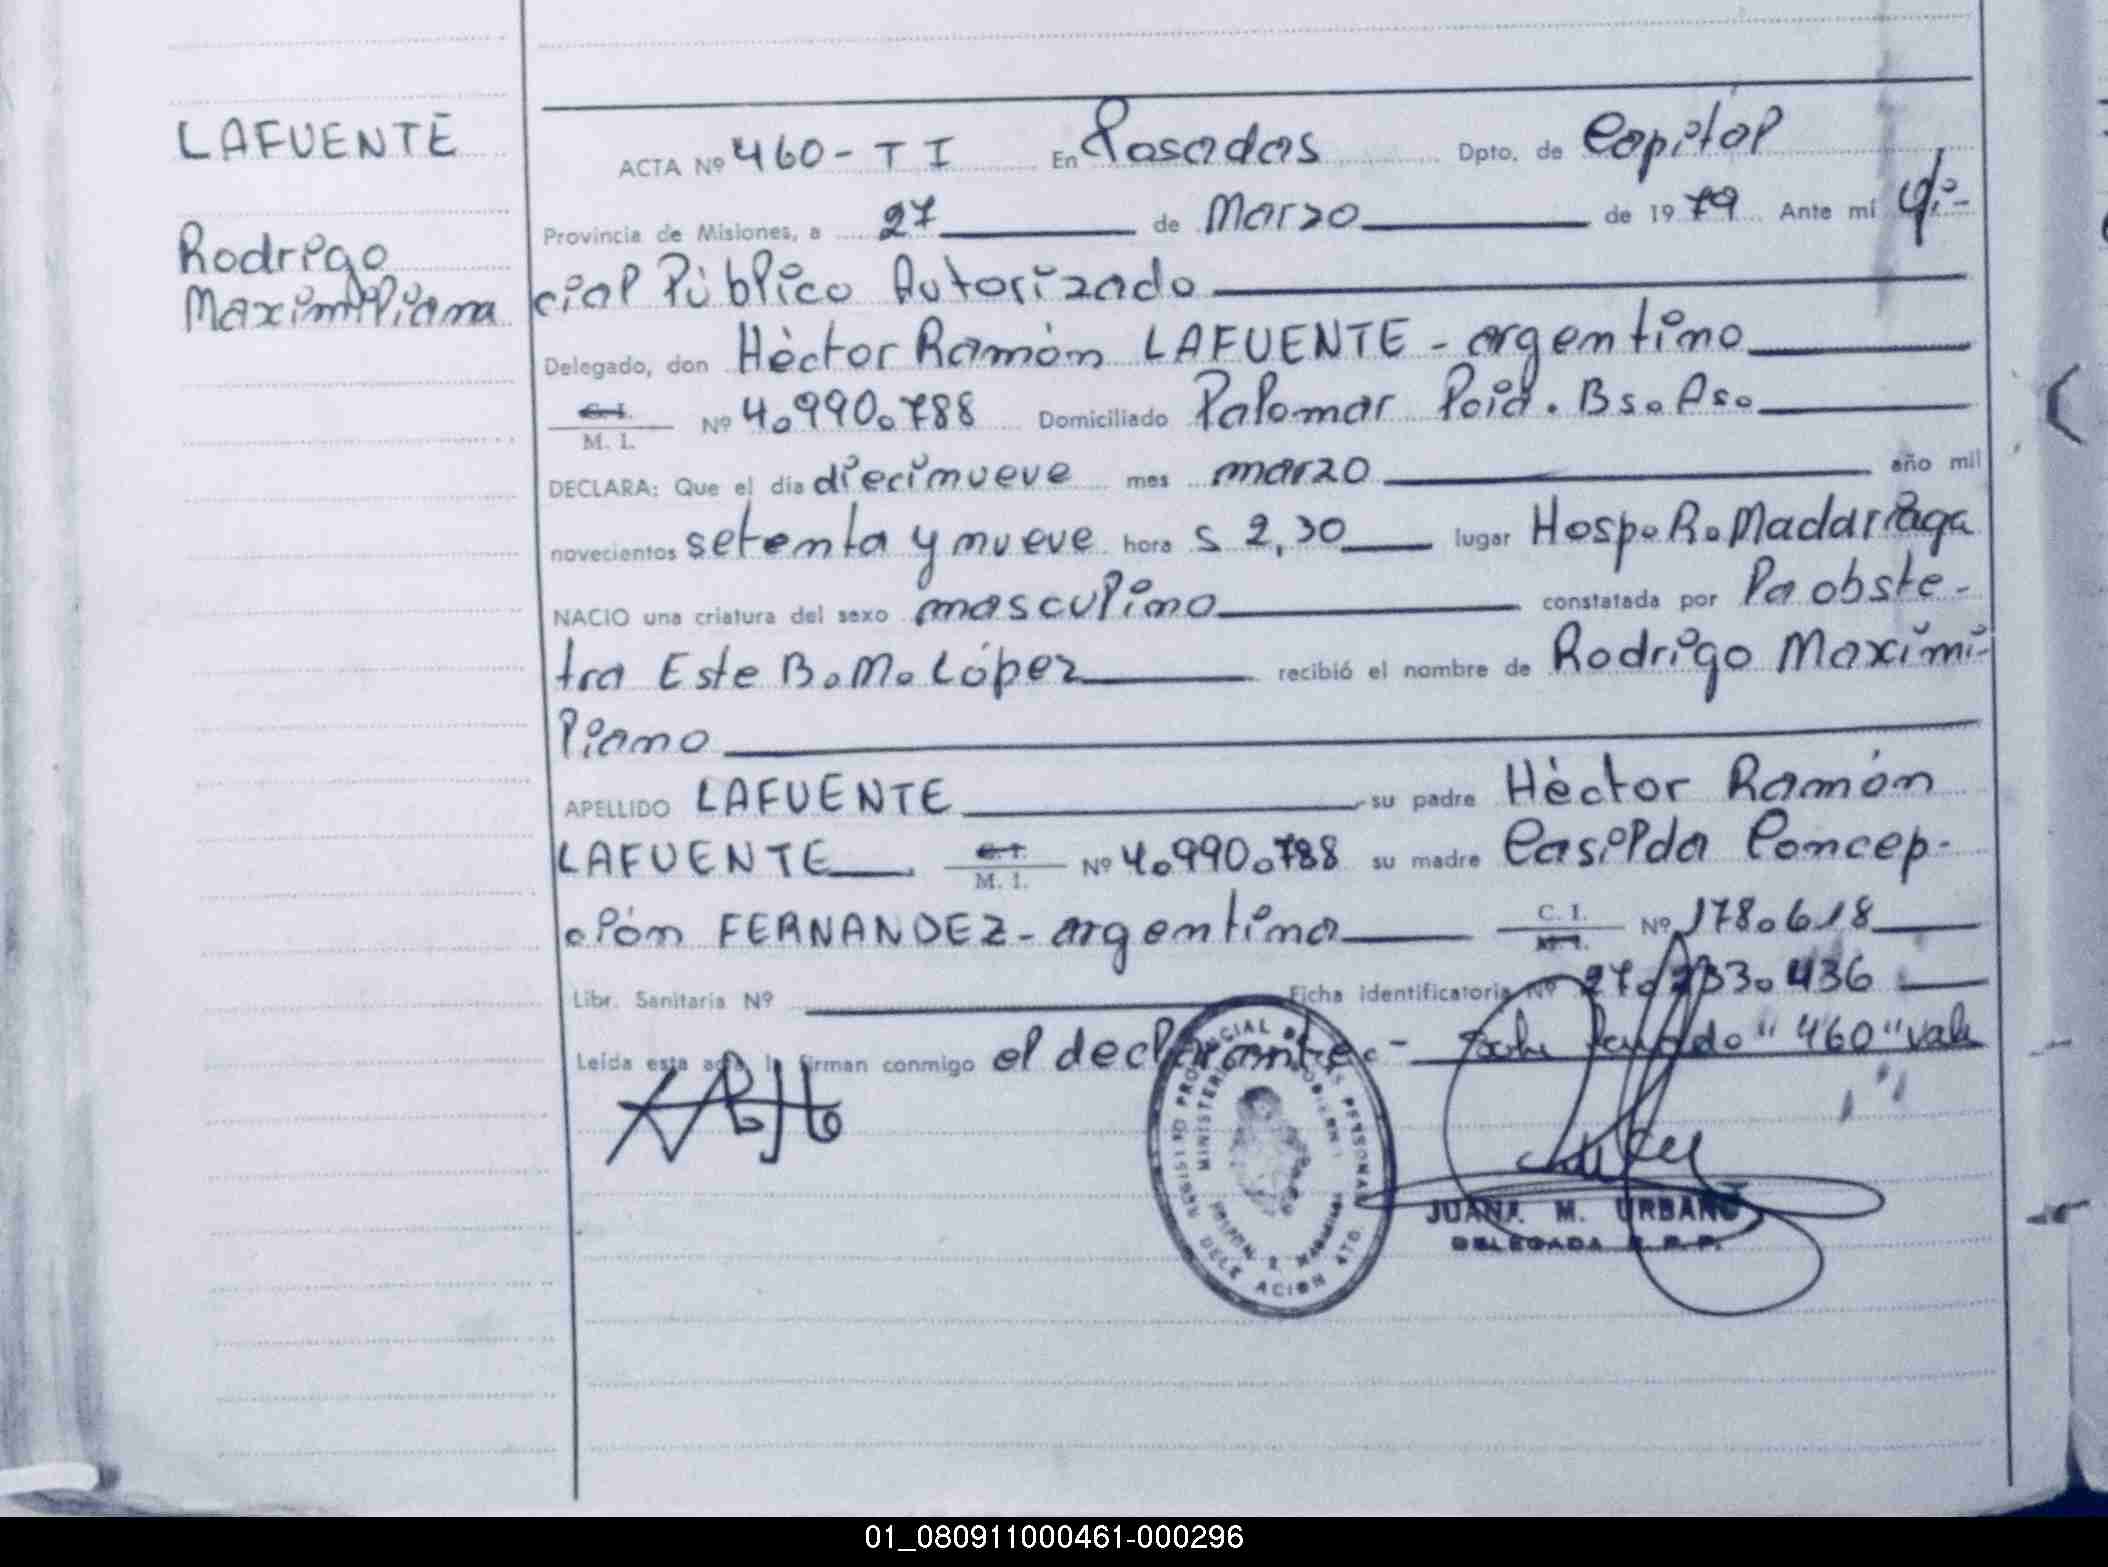 LAFUENTE
Rodrigo
Maximiliano
ACTA Nº 460-TI En Posadas Dpto. de Capital
Provincia de Misiones, a 27 de Marzo de 1979 Ante mí Ofi-
cial Público Autorizado
Delegado, don Hèctor Ramón LAFUENTE - argentino
C. I. M. I. Nº 4.990.788 Domiciliado Palomar Pcia. Bs. As.
DECLARA: Que el día diecinueve mes marzo año mil
novecientos setenta y nueve hora s 2,30 lugar Hosp. R. Madariaga
NACIO una criatura del sexo masculino constatada por la obste-
tra Este B. M. López recibió el nombre de Rodrigo Maximi-
liano
APELLIDO LAFUENTE su padre Hèctor Ramón
LAFUENTE C. I. M. I. Nº 4.990.788 su madre Casilda Concep-
ción FERNANDEZ - argentina C. I. M. I. Nº 178.618
Libr. Sanitaria Nº Ficha identificatoria Nº 27.233.436
Leída esta acta, la firman conmigo el declarante.- "460" vale
REGISTRO PROVINCIAL DE LAS PERSONAS
MINISTERIO DE GOBIERNO
DELEGACION 4TO.
JUANA M. URBANO
DELEGADA R. P. P.
01_080911000461-000296